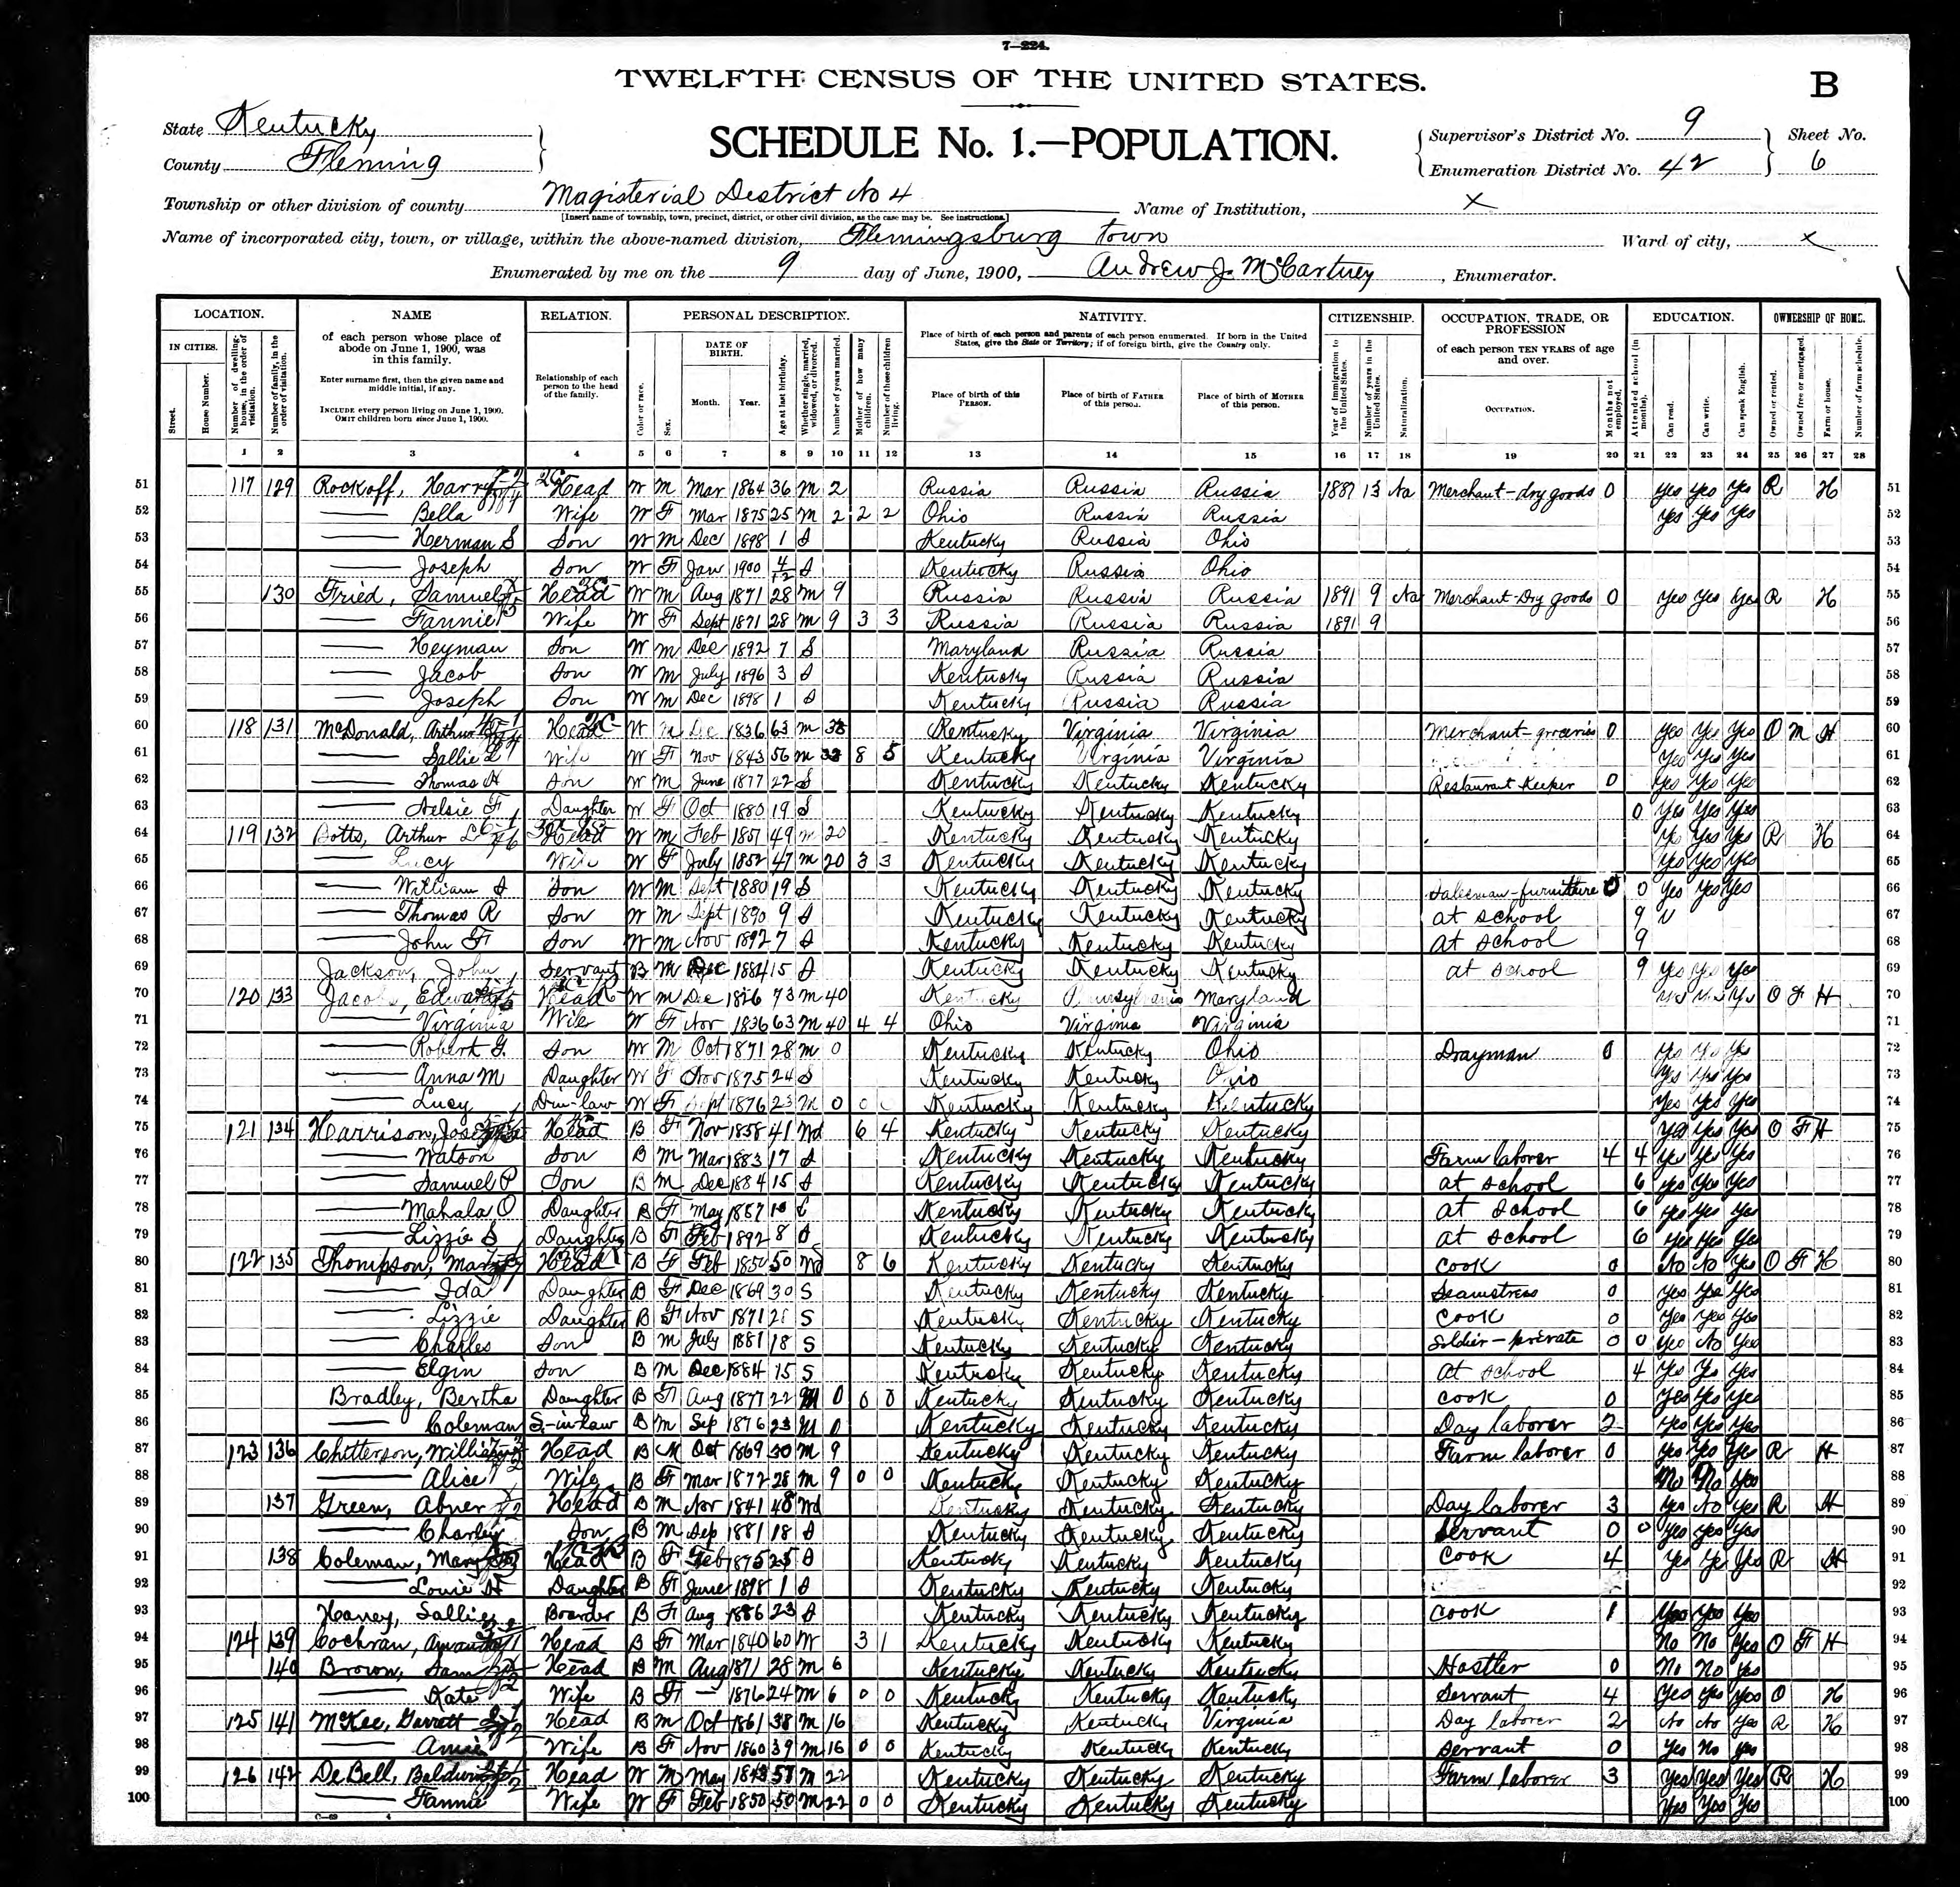 7—224.
TWELFTH CENSUS OF THE UNITED STATES.
B
State Kentucky
County Fleming
SCHEDULE No. 1.—POPULATION.
Supervisor's District No. 9
Enumeration District No. 42
Sheet No.
6
Township or other division of county Magisterial District No 4
[Insert name of township, town, precinct, district, or other civil division, as the case may be. See instructions.]
Name of Institution, X
Name of incorporated city, town, or village, within the above-named division, Flemingsburg town
Ward of city, X
Enumerated by me on the 9 day of June, 1900, Andrew J. McCartney, Enumerator.
LOCATION. NAME RELATION. PERSONAL DESCRIPTION. NATIVITY. CITIZENSHIP. OCCUPATION, TRADE, OR PROFESSION EDUCATION. OWNERSHIP OF HOME.
IN CITIES. Street. House Number. Number of dwelling-house, in the order of visitation. Number of family, in the order of visitation.
of each person whose place of abode on June 1, 1900, was in this family.
Enter surname first, then the given name and middle initial, if any.
INCLUDE every person living on June 1, 1900. OMIT children born since June 1, 1900.
Relationship of each person to the head of the family.
Color or race. Sex. DATE OF BIRTH. Month. Year. Age at last birthday. Whether single, married, widowed, or divorced. Number of years married. Mother of how many children. Number of these children living.
Place of birth of each person and parents of each person enumerated. If born in the United States, give the State or Territory; if of foreign birth, give the Country only.
Place of birth of this PERSON. Place of birth of FATHER of this person. Place of birth of MOTHER of this person.
Year of immigration to the United States. Number of years in the United States. Naturalization.
of each person TEN YEARS of age and over.
OCCUPATION. Months not employed.
Attended school (in months). Can read. Can write. Can speak English.
Owned or rented. Owned free or mortgaged. Farm or house. Number of farm schedule.
1 2 3 4 5 6 7 8 9 10 11 12 13 14 15 16 17 18 19 20 21 22 23 24 25 26 27 28
51 117 129 Rockoff, Harry Head W M Mar 1864 36 M 2 Russia Russia Russia 1887 13 Na Merchant-dry goods 0 Yes Yes Yes R H 51
52 Bella Wife W F Mar 1875 25 M 2 2 2 Ohio Russia Russia Yes Yes Yes 52
53 Herman S Son W M Dec 1898 1 S Kentucky Russia Ohio 53
54 Joseph Son W F Jan 1900 4/12 S Kentucky Russia Ohio 54
55 130 Fried, Samuel Head W M Aug 1871 28 M 9 Russia Russia Russia 1891 9 Na Merchant-Dry goods 0 Yes Yes Yes R H 55
56 Fannie Wife W F Sept 1871 28 M 9 3 3 Russia Russia Russia 1891 9 56
57 Heyman Son W M Dec 1892 7 S Maryland Russia Russia 57
58 Jacob Son W M July 1896 3 S Kentucky Russia Russia 58
59 Joseph Son W M Dec 1898 1 S Kentucky Russia Russia 59
60 118 131 McDonald, Arthur Head W M Dec 1836 63 M 38 Kentucky Virginia Virginia Merchant-groceries 0 Yes Yes Yes O M H 60
61 Sallie Wife W F Nov 1843 56 M 8 5 Kentucky Virginia Virginia Yes Yes Yes 61
62 Thomas H Son W M June 1877 22 S Kentucky Kentucky Kentucky Restaurant Keeper 0 Yes Yes Yes 62
63 Daughter W F Oct 1880 19 S Kentucky Kentucky Kentucky 0 Yes Yes Yes 63
64 119 132 Botts, Arthur Head W M Feb 1851 49 M 20 Kentucky Kentucky Kentucky Yes Yes Yes R H 64
65 Lucy Wife W F July 1852 47 M 20 3 3 Kentucky Kentucky Kentucky Yes Yes Yes 65
66 William S Son W M Sept 1880 19 S Kentucky Kentucky Kentucky Salesman-furniture 0 0 Yes Yes Yes 66
67 Thomas R Son W M Sept 1890 9 S Kentucky Kentucky Kentucky at school 9 67
68 John F Son W M Nov 1892 7 S Kentucky Kentucky Kentucky at school 9 68
69 Jackson, John Servant B M Dec 1884 15 S Kentucky Kentucky Kentucky at school 9 Yes Yes Yes 69
70 120 133 Jacobs, Edward Head W M Dec 1826 73 M 40 Kentucky Pennsylvania Maryland Yes Yes Yes O F H 70
71 Virginia Wife W F Nov 1836 63 M 40 4 4 Ohio Virginia Virginia 71
72 Robert G. Son W M Oct 1871 28 M 0 Kentucky Kentucky Ohio Drayman 0 Yes Yes Yes 72
73 Anna M Daughter W F Nov 1875 24 S Kentucky Kentucky Ohio Yes Yes Yes 73
74 Lucy D-in-law W F Sept 1876 23 M 0 0 Kentucky Kentucky Kentucky Yes Yes Yes 74
75 121 134 Harrison, Head B F Nov 1858 41 Wd 6 4 Kentucky Kentucky Kentucky Yes Yes Yes O F H 75
76 Watson Son B M Mar 1883 17 S Kentucky Kentucky Kentucky Farm laborer 4 4 Yes Yes Yes 76
77 Samuel P Son B M Dec 1884 15 S Kentucky Kentucky Kentucky at school 6 Yes Yes Yes 77
78 Mahala O Daughter B F May 1887 S Kentucky Kentucky Kentucky at school 6 Yes Yes Yes 78
79 Lizzie S Daughter B F Feb 1892 8 S Kentucky Kentucky Kentucky at school 6 Yes Yes Yes 79
80 122 135 Thompson, Mary Head B F Feb 1850 50 Wd 8 6 Kentucky Kentucky Kentucky Cook 0 No No Yes O F H 80
81 Ida Daughter B F Dec 1869 30 S Kentucky Kentucky Kentucky Seamstress 0 Yes Yes Yes 81
82 Lizzie Daughter B F Nov 1871 28 S Kentucky Kentucky Kentucky Cook 0 Yes Yes Yes 82
83 Charles Son B M July 1881 18 S Kentucky Kentucky Kentucky Soldier-private 0 0 Yes No Yes 83
84 Elgin Son B M Dec 1884 15 S Kentucky Kentucky Kentucky at school 4 Yes Yes Yes 84
85 Bradley, Bertha Daughter B F Aug 1877 22 M 0 0 0 Kentucky Kentucky Kentucky Cook 0 Yes Yes Yes 85
86 Coleman S-in-law B M Sep 1876 23 M 0 Kentucky Kentucky Kentucky Day laborer 2 Yes Yes Yes 86
87 123 136 Chitterson, William Head B M Oct 1869 30 M 9 Kentucky Kentucky Kentucky Farm laborer 0 Yes Yes Yes R H 87
88 Alice Wife B F Mar 1872 28 M 9 0 0 Kentucky Kentucky Kentucky No No Yes 88
89 137 Green, Abner Head B M Nov 1841 48 Wd Kentucky Kentucky Kentucky Day laborer 3 Yes No Yes R H 89
90 Charley Son B M Sep 1881 18 S Kentucky Kentucky Kentucky Servant 0 0 Yes Yes Yes 90
91 138 Coleman, Mary Head B F Feb 1875 25 S Kentucky Kentucky Kentucky Cook 4 Yes Yes Yes R H 91
92 Louie H Daughter B F June 1898 1 S Kentucky Kentucky Kentucky 92
93 Haney, Sallie Boarder B F Aug 1886 23 S Kentucky Kentucky Kentucky Cook 1 Yes Yes Yes 93
94 124 139 Cochran, Amanda Head B F Mar 1840 60 W 3 1 Kentucky Kentucky Kentucky No No Yes O F H 94
95 140 Brown, Sam Head B M Aug 1871 28 M 6 Kentucky Kentucky Kentucky Hostler 0 No No Yes 95
96 Kate Wife B F — 1876 24 M 6 0 0 Kentucky Kentucky Kentucky Servant 4 Yes Yes Yes O H 96
97 125 141 McKee, Garrett Head B M Oct 1861 38 M 16 Kentucky Kentucky Virginia Day laborer 2 No No Yes R H 97
98 Wife B F Nov 1860 39 M 16 0 0 Kentucky Kentucky Kentucky Servant 0 Yes No Yes 98
99 126 142 DeBell, Baldwin Head W M May M 22 Kentucky Kentucky Kentucky Farm laborer 3 Yes Yes Yes R H 99
100 Fannie Wife W F Feb 1850 50 M 22 0 0 Kentucky Kentucky Kentucky Yes Yes Yes 100